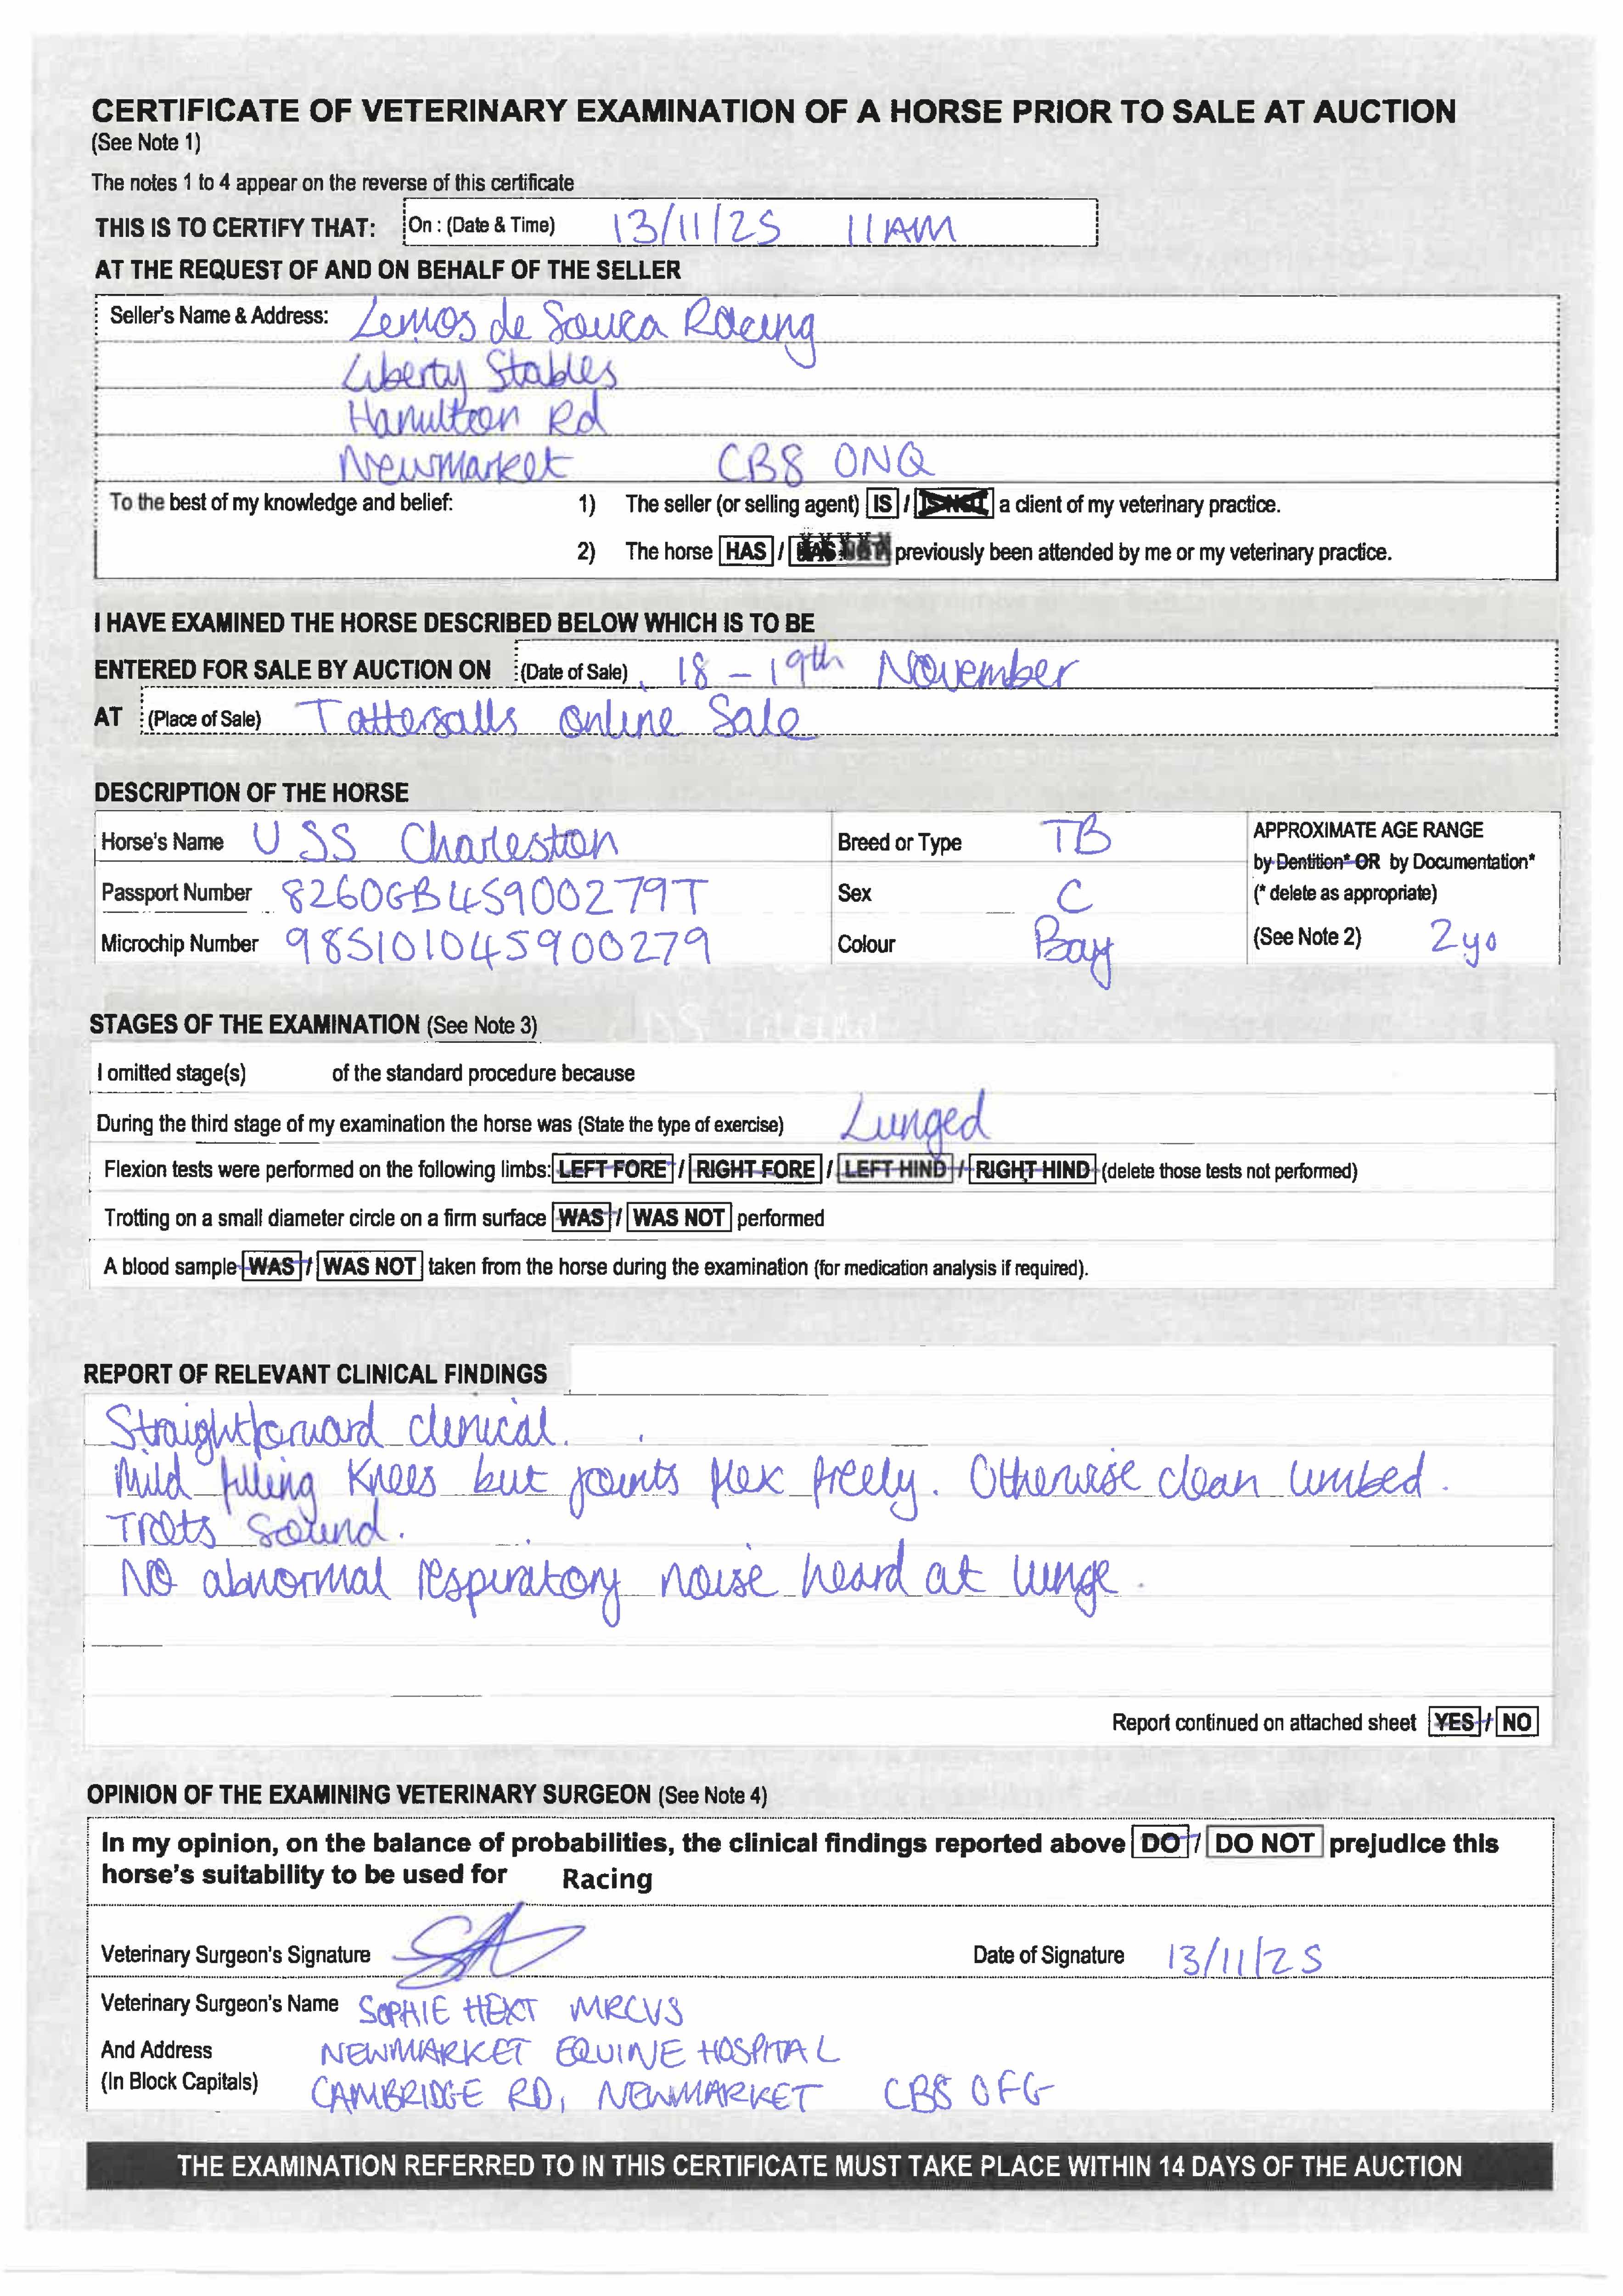 CERTIFICATE OF VETERINARY EXAMINATION OF A HORSE PRIOR TO SALE AT AUCTION
(See Note 1)
The notes 1 to 4 appear on the reverse of this certificate
THIS IS TO CERTIFY THAT: On : (Date & Time) 13/11/25 11AM
AT THE REQUEST OF AND ON BEHALF OF THE SELLER
Seller's Name & Address: Lemos de Souza Racing
Liberty Stables
Hamilton Rd
Newmarket CB8 0NQ
To the best of my knowledge and belief: 1) The seller (or selling agent) IS / IS NOT a client of my veterinary practice.
2) The horse HAS / HAS NOT previously been attended by me or my veterinary practice.
I HAVE EXAMINED THE HORSE DESCRIBED BELOW WHICH IS TO BE
ENTERED FOR SALE BY AUCTION ON (Date of Sale) 18 - 19th November
AT (Place of Sale) Tattersalls Online Sale
DESCRIPTION OF THE HORSE
Horse's Name USS Charleston Breed or Type TB APPROXIMATE AGE RANGE
by Dentition* OR by Documentation*
Passport Number 8260GB45900279T Sex C (* delete as appropriate)
Microchip Number 985101045900279 Colour Bay (See Note 2) 2yo
STAGES OF THE EXAMINATION (See Note 3)
I omitted stage(s) of the standard procedure because
During the third stage of my examination the horse was (State the type of exercise) Lunged
Flexion tests were performed on the following limbs: LEFT FORE / RIGHT FORE / LEFT HIND / RIGHT HIND (delete those tests not performed)
Trotting on a small diameter circle on a firm surface WAS / WAS NOT performed
A blood sample WAS / WAS NOT taken from the horse during the examination (for medication analysis if required).
REPORT OF RELEVANT CLINICAL FINDINGS
Straightforward clinical.
Mild filling knees but joints flex freely. Otherwise clean limbed.
Trots sound.
No abnormal respiratory noise heard at lunge.
Report continued on attached sheet YES / NO
OPINION OF THE EXAMINING VETERINARY SURGEON (See Note 4)
In my opinion, on the balance of probabilities, the clinical findings reported above DO / DO NOT prejudice this
horse's suitability to be used for Racing
Veterinary Surgeon's Signature Date of Signature 13/11/25
Veterinary Surgeon's Name SOPHIE HEXT MRCVS
And Address NEWMARKET EQUINE HOSPITAL
(In Block Capitals) CAMBRIDGE RD, NEWMARKET CB8 0FG
THE EXAMINATION REFERRED TO IN THIS CERTIFICATE MUST TAKE PLACE WITHIN 14 DAYS OF THE AUCTION